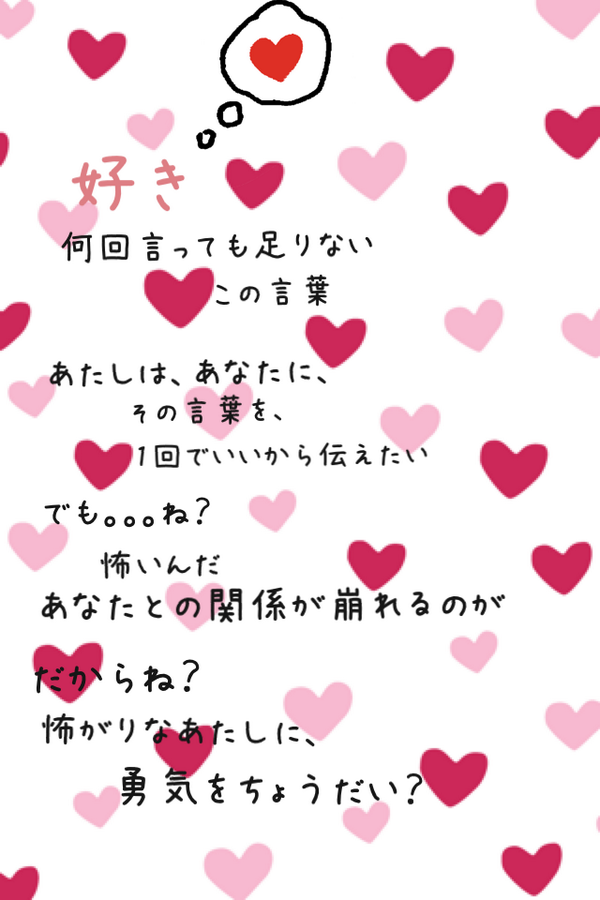 好き
何回言っても足りない
この言葉
あたしは、あなたに、
その言葉を、
1回でいいから伝えたい
でも。。。ね?
怖いんだ
あなたとの関係が崩れるのが
だからね?
怖がりなあたしに、
勇気をちょうだい?